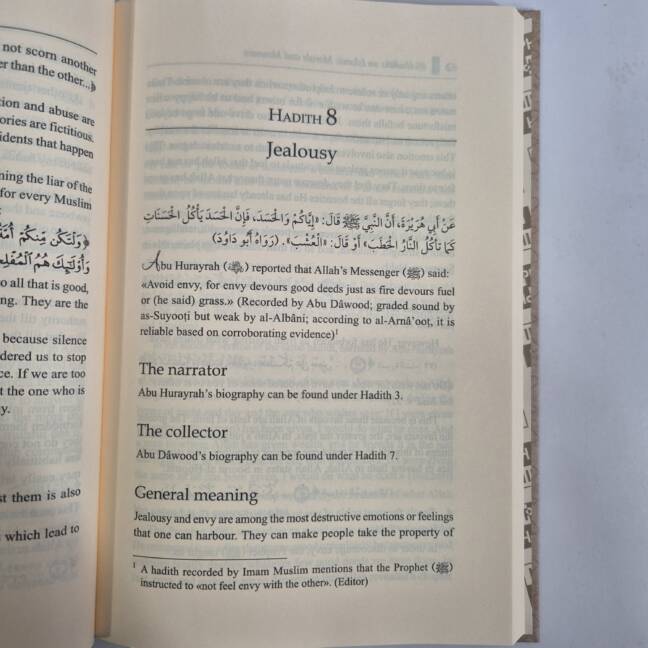 not scorn another
er than the other...﴾
tion and abuse are
ories are fictitious.
idents that happen
ning the liar of the
for every Muslim
﴿وَلْتَكُن مِّنكُمْ أُمَّةٌ
وَأُولَٰئِكَ هُمُ الْمُفْلِحُ
o all that is good,
ng. They are the
because silence
dered us to stop
ce. If we are too
t the one who is
y.
st them is also
which lead to
HADITH 8
Jealousy
عَنْ أَبِي هُرَيْرَةَ، أَنَّ النَّبِيَّ ﷺ قَالَ: «إِيَّاكُمْ وَالْحَسَدَ، فَإِنَّ الْحَسَدَ يَأْكُلُ الْحَسَنَاتِ
كَمَا تَأْكُلُ النَّارُ الْحَطَبَ» أَوْ قَالَ: «الْعُشْبَ». (رَوَاهُ أَبُو دَاوُدَ)
Abu Hurayrah () reported that Allah's Messenger (ﷺ) said:
«Avoid envy, for envy devours good deeds just as fire devours fuel
or (he said) grass.» (Recorded by Abu Dâwood; graded sound by
as-Suyooṭi but weak by al-Albâni; according to al-Arnâ'ooṭ, it is
reliable based on corroborating evidence)¹
The narrator
Abu Hurayrah's biography can be found under Hadith 3.
The collector
Abu Dâwood's biography can be found under Hadith 7.
General meaning
Jealousy and envy are among the most destructive emotions or feelings
that one can harbour. They can make people take the property of
¹ A hadith recorded by Imam Muslim mentions that the Prophet (ﷺ)
instructed to «not feel envy with the other». (Editor)